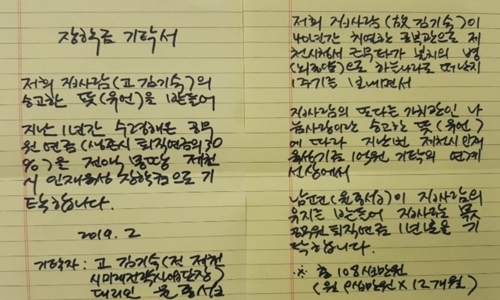 장학금 기탁서
저희 집사람(고 김기숙)의
숭고한 뜻(유언)을 받들어
지난 1년간 수령해온 공무
원 연금(생존시 퇴직연금의 30
%)을 전액 몽땅 제천
시 인재육성 장학금으로 기
탁합니다.
2019. 2
기탁자 : 고 김기숙(전 제천
시 미래전략사업단장)
대리인 윤종섭
저희 집사람(故 김기숙)이
40년간 지방 공무원으로 제
천시청에서 근무타가 불치의 병
(뇌종양)으로 하늘나라로 떠난지
1주기를 보내면서
집사람의 또다른 가치관인 나
눔사랑이란 숭고한 뜻(유언)
에 따라 지난번 제천시 인재
육성기금 1억원 기탁의 연계
선상에서
남편(윤종섭)이 집사람의
유지를 받들어 집사람 몫
공무원 퇴직연금 1년분을 기
탁합니다.
※ 총 108십만원
(월 9십만원 × 12개월)